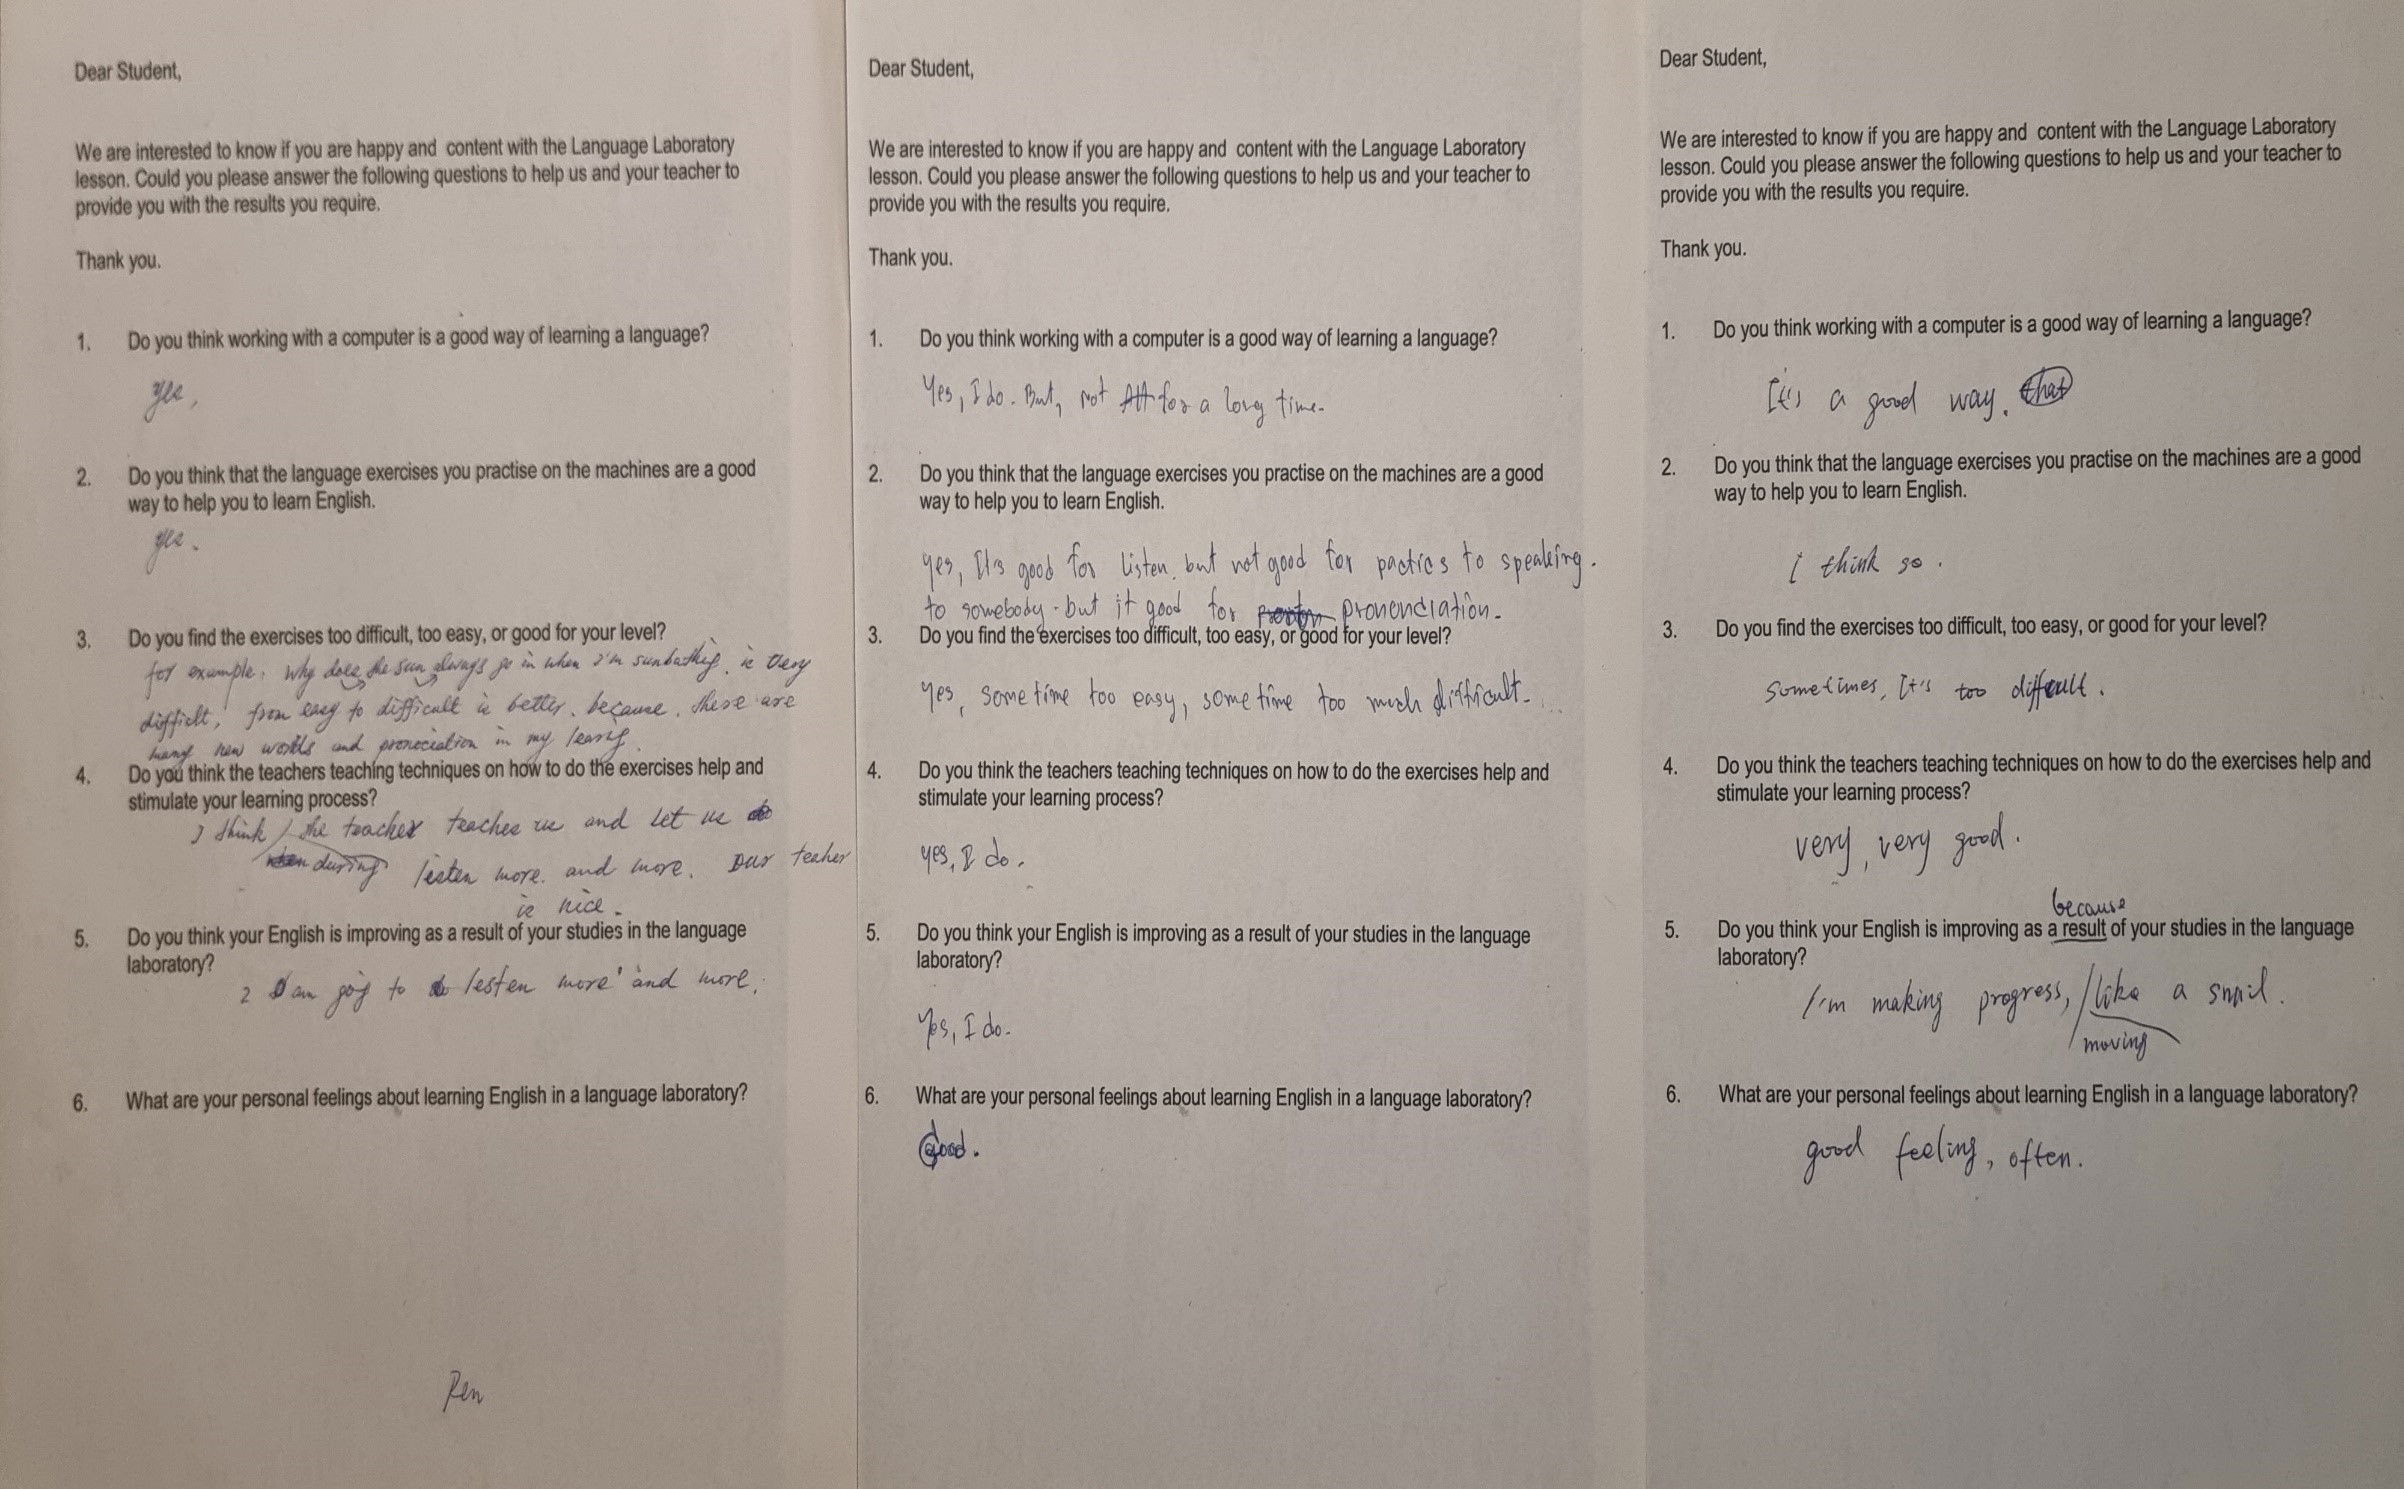 Dear Student,
We are interested to know if you are happy and content with the Language Laboratory
lesson. Could you please answer the following questions to help us and your teacher to
provide you with the results you require.
Thank you.
1. Do you think working with a computer is a good way of learning a language?
yes,
2. Do you think that the language exercises you practise on the machines are a good
way to help you to learn English.
yes.
3. Do you find the exercises too difficult, too easy, or good for your level?
for example. Why does the sun always go in when I'm sunbathig. is very
difficlt, from easy to difficult is better. because. there are
many new words and pronociation in my
4. Do you think the teachers teaching techniques on how to do the exercises help and
stimulate your learning process?
I think / the teacher teaches us and let us
during listen more. and more. Our teaher
is nice.
5. Do you think your English is improving as a result of your studies in the language
laboratory?
am goig to lesten more and more.
6. What are your personal feelings about learning English in a language laboratory?
Ren
Dear Student,
We are interested to know if you are happy and content with the Language Laboratory
lesson. Could you please answer the following questions to help us and your teacher to
provide you with the results you require.
Thank you.
1. Do you think working with a computer is a good way of learning a language?
Yes, I do. But, not for a long time.
2. Do you think that the language exercises you practise on the machines are a good
way to help you to learn English.
yes, It's good for listen, but not good for pactics to speaking.
to somebody. but it good for pronenciation.
3. Do you find the exercises too difficult, too easy, or good for your level?
Yes, sometime too easy, sometime too much difficult...
4. Do you think the teachers teaching techniques on how to do the exercises help and
stimulate your learning process?
yes, I do.
5. Do you think your English is improving as a result of your studies in the language
laboratory?
Yes, I do.
6. What are your personal feelings about learning English in a language laboratory?
Good.
Dear Student,
We are interested to know if you are happy and content with the Language Laboratory
lesson. Could you please answer the following questions to help us and your teacher to
provide you with the results you require.
Thank you.
1. Do you think working with a computer is a good way of learning a language?
It's a good way. that
2. Do you think that the language exercises you practise on the machines are a good
way to help you to learn English.
I think so.
3. Do you find the exercises too difficult, too easy, or good for your level?
Sometimes, It's too difficult.
4. Do you think the teachers teaching techniques on how to do the exercises help and
stimulate your learning process?
very, very good.
because
5. Do you think your English is improving as a result of your studies in the language
laboratory?
I'm making progress, / like a snail.
moving
6. What are your personal feelings about learning English in a language laboratory?
good feeling, often.